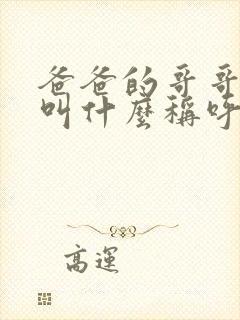 爸爸的哥哥
叫什麼稱呼
高運